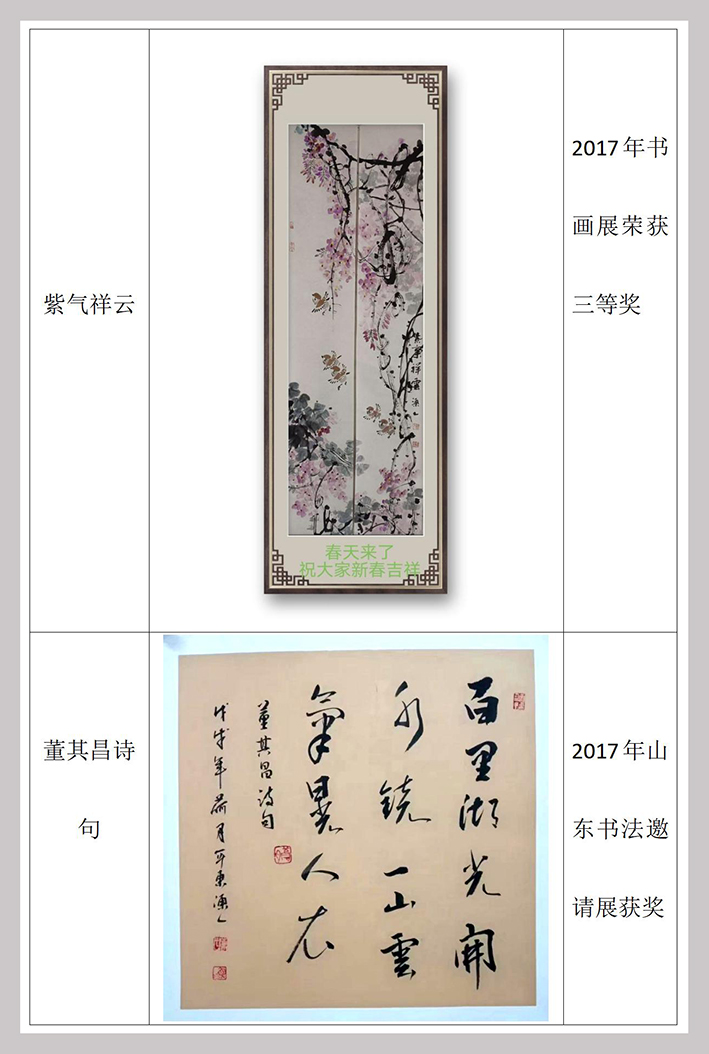 紫气祥云
紫气祥雲 渔人
春天来了
祝大家新春吉祥
2017年书
画展荣获
三等奖
董其昌诗
句
百里湖光开
水镜一山雲
氣晃人衣
董其昌诗句
戊戌年荷月
渔人
2017年山
东书法邀
请展获奖